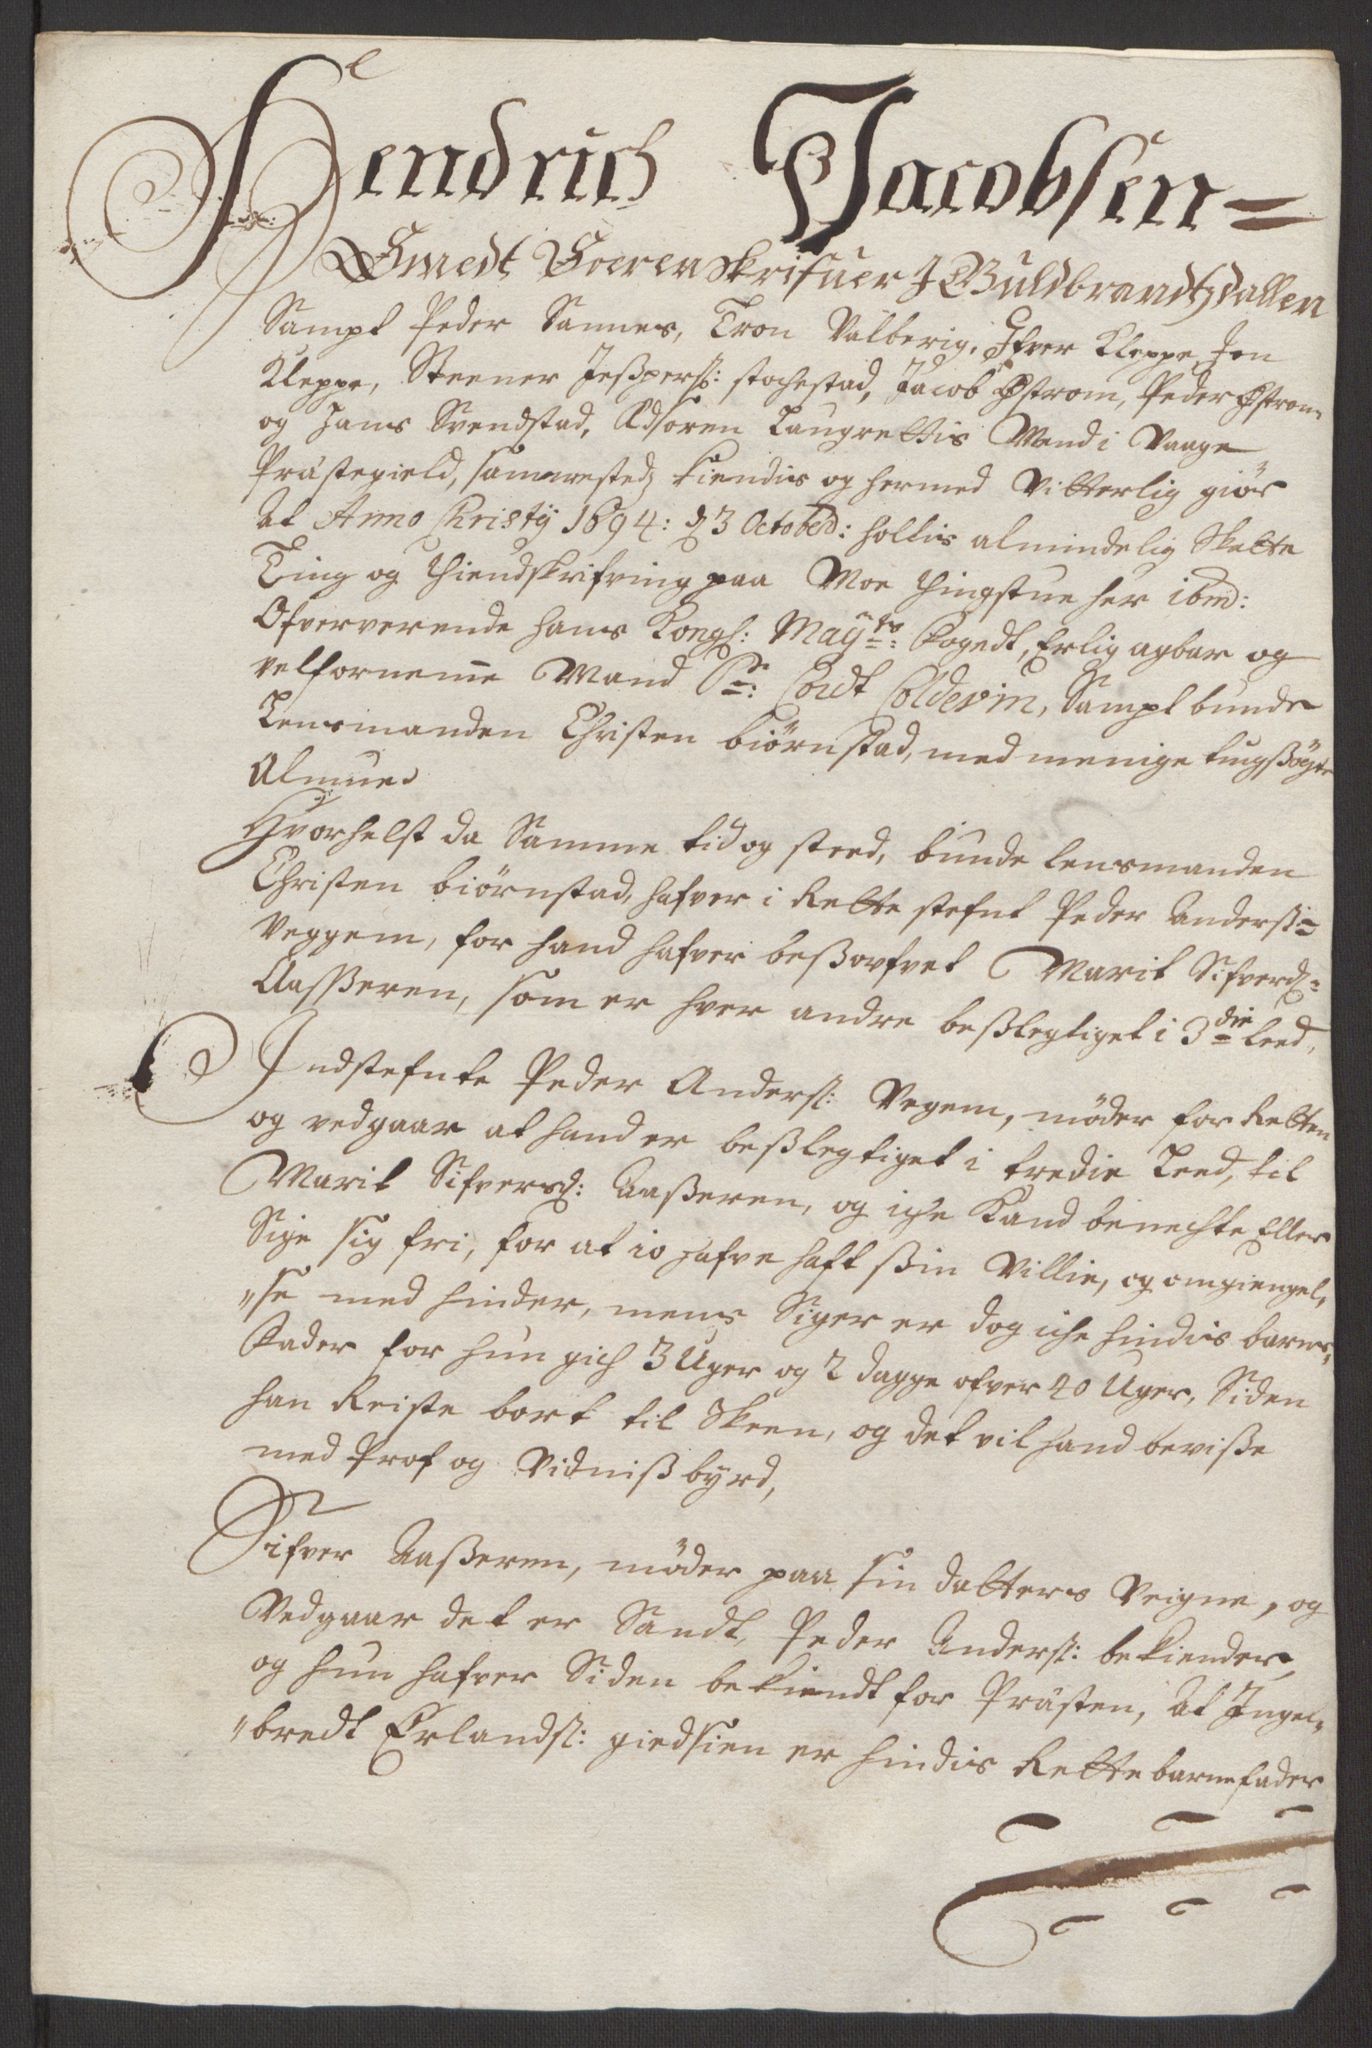 Hendrich Jacobsen
Smedt Soerenskrifuer J Guldbrandtzdallen
Sampt Peder Sannes, Tron Valberig, Ifver Kleppe, Jon
Kleppe, Steener Jeßpers: stochestad, Jacob Østrom, Peder Østrom
og Hans Svendstad, Edsoren Laugrettis Mend i Vaage
Præstegield, sammested, kiendis og hermed Vitterlig giør
At Anno Christij 1694: d 3 Octobed: holtis almindelig Skatte
Ting og thiendskrifning paa Moe thingstue her ibm:
Ofververende hans Kongl: Mayts: Fogedt, Erlig agbar og
velfornemme Mand Sr: Cordt Coldevin, Sampt bunde
Lensmanden Christen biørnstad, med menige tingsøgte
Almue
Hvorhelst da Samme tid og sted, bunde lensmanden
Christen biørnstad, hafver i Rette stefnt Peder Anderss=
Veggem, for hand hafver beßofvet Marit Sifverd=
Aaßeren, som er hver andre beßlegtiget i 3die leed,
Indstefnte Peder Anders: Vegem, møder for Retten
og vedgaar at hand er beßlegtiget i tredie Leed, til
Marit Sifversd: Aaßeren, og iche kand benechte Eller
Sige sig fri, for at io hafve haft ßin Villie, og omgiengel,
"se med hinder, mens Siger er dog iche hindis barne,
fader for hun gich 3 Uger og 2 dagge ofver 40 Uger, Siden
han Reiste bort til Skeen, og det vil hand beviße
med Prof og Vidnißbyrd,
Sifver Aaßeren, møder paa sin datters Veigne, og
Vedgaar det er Sandt, Peder Anders: bekiender,
og hun hafver Siden bekiendt for Præsten, At Ingel,
"bredt Erlands: giedsien er hindis Rette barnefader